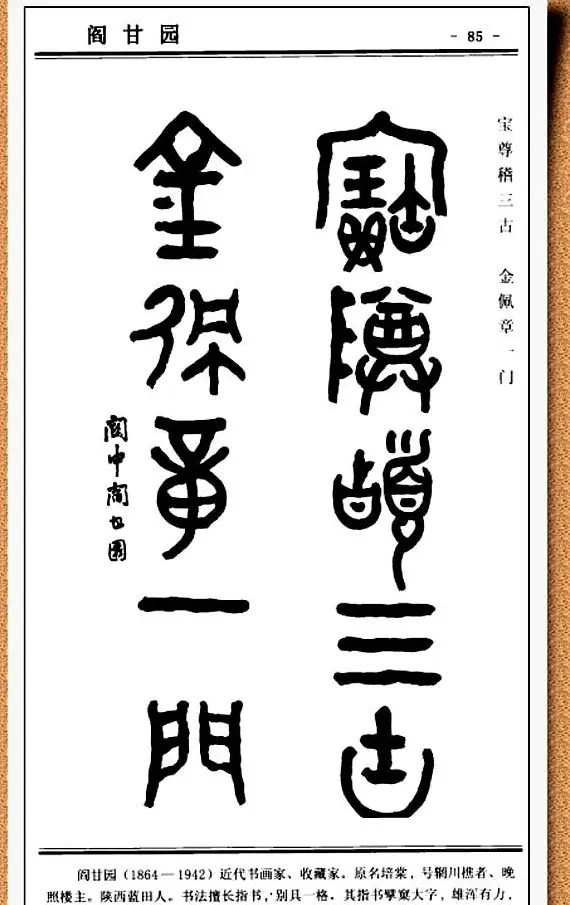 阎甘园
- 85 -
宝尊稽三古 金佩章一门
寶尊稽三古
金保章一門
關中閻甘園
阎甘园（1864—1942）近代书画家、收藏家。原名培棠，号辋川樵者、晚
照楼主。陕西蓝田人。书法擅长指书，别具一格。其指书擘窠大字，雄浑有力，